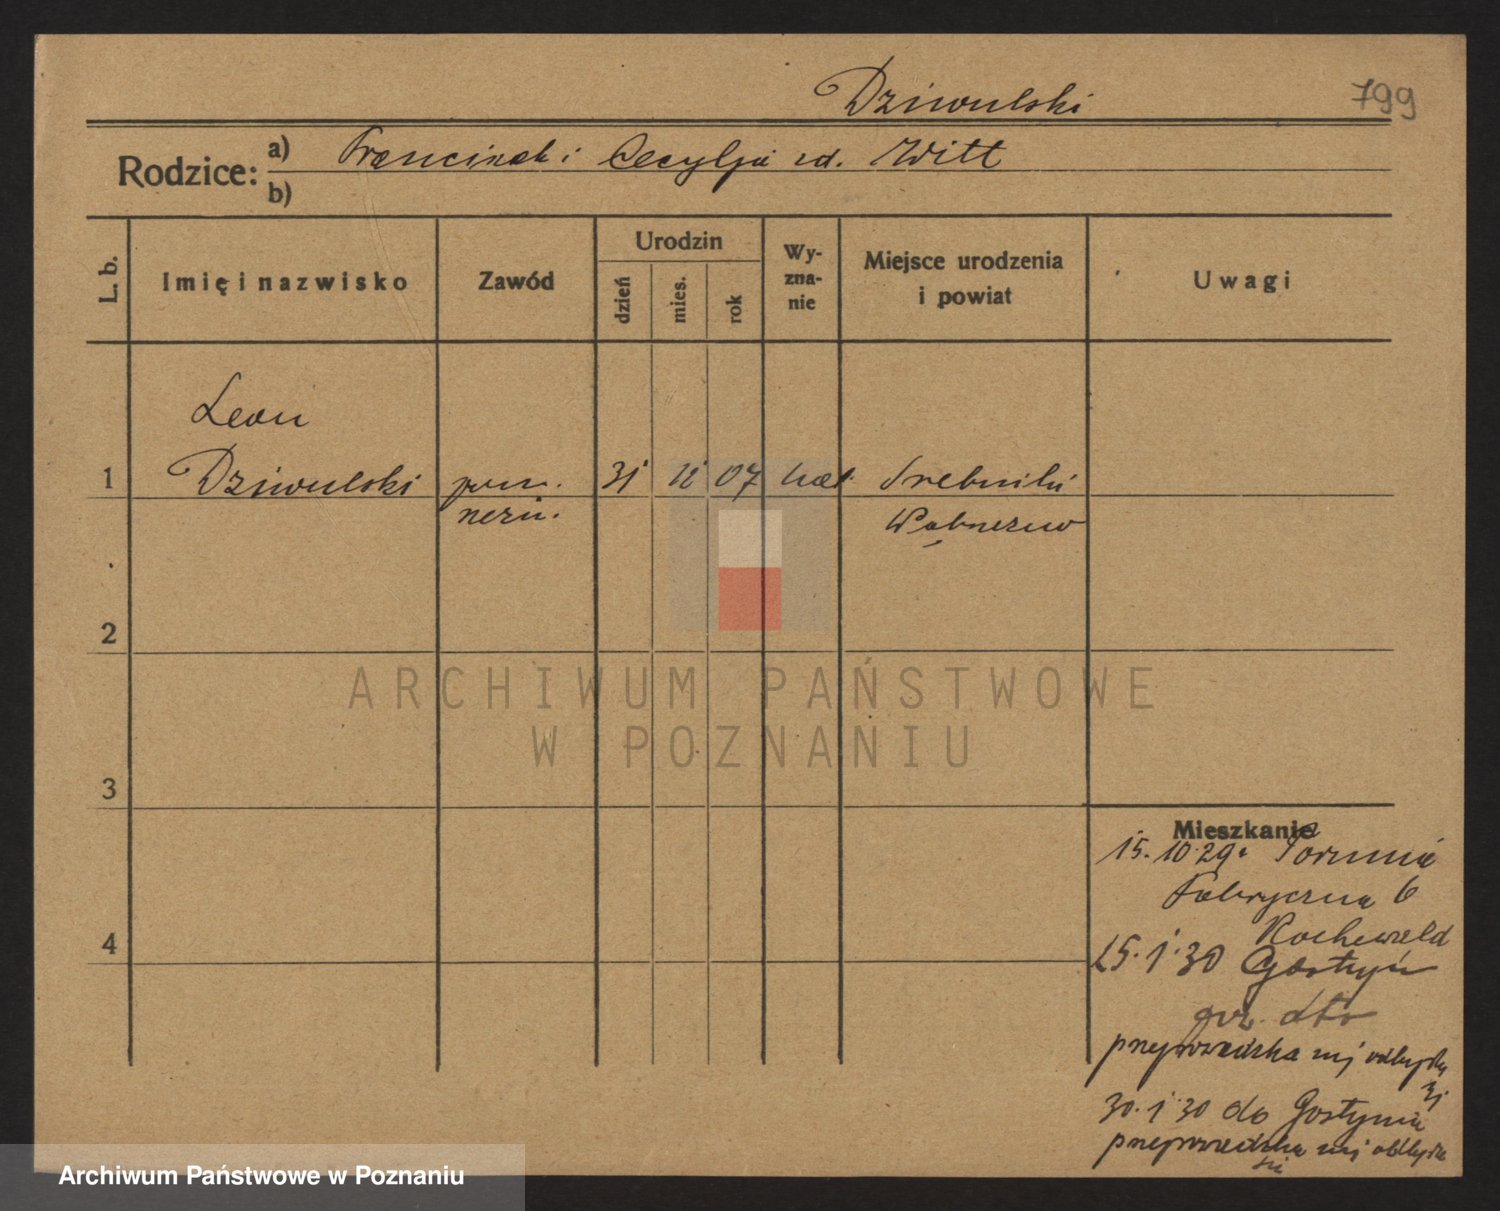 Dziwulski
799
Rodzice:
a) Franciszek i Cecylja zd. Witt
b)
L. b.
Imię i nazwisko
Zawód
Urodzin
dzień
mies.
rok
Wy-
zna-
nie
Miejsce urodzenia
i powiat
Uwagi
Leon
1 Dziwulski pom. 31 12 07 kat. Srebniki
Wąbrzeźno
2
3
4
Mieszkanie
15.10.29. z Torunia
Fabryczna 6
25.1.30 Gostyń
przeprowadzka
30.1.30 do Gostynia
przeprowadzka
się
ARCHIWUM PAŃSTWOWE
W POZNANIU
Archiwum Państwowe w Poznaniu